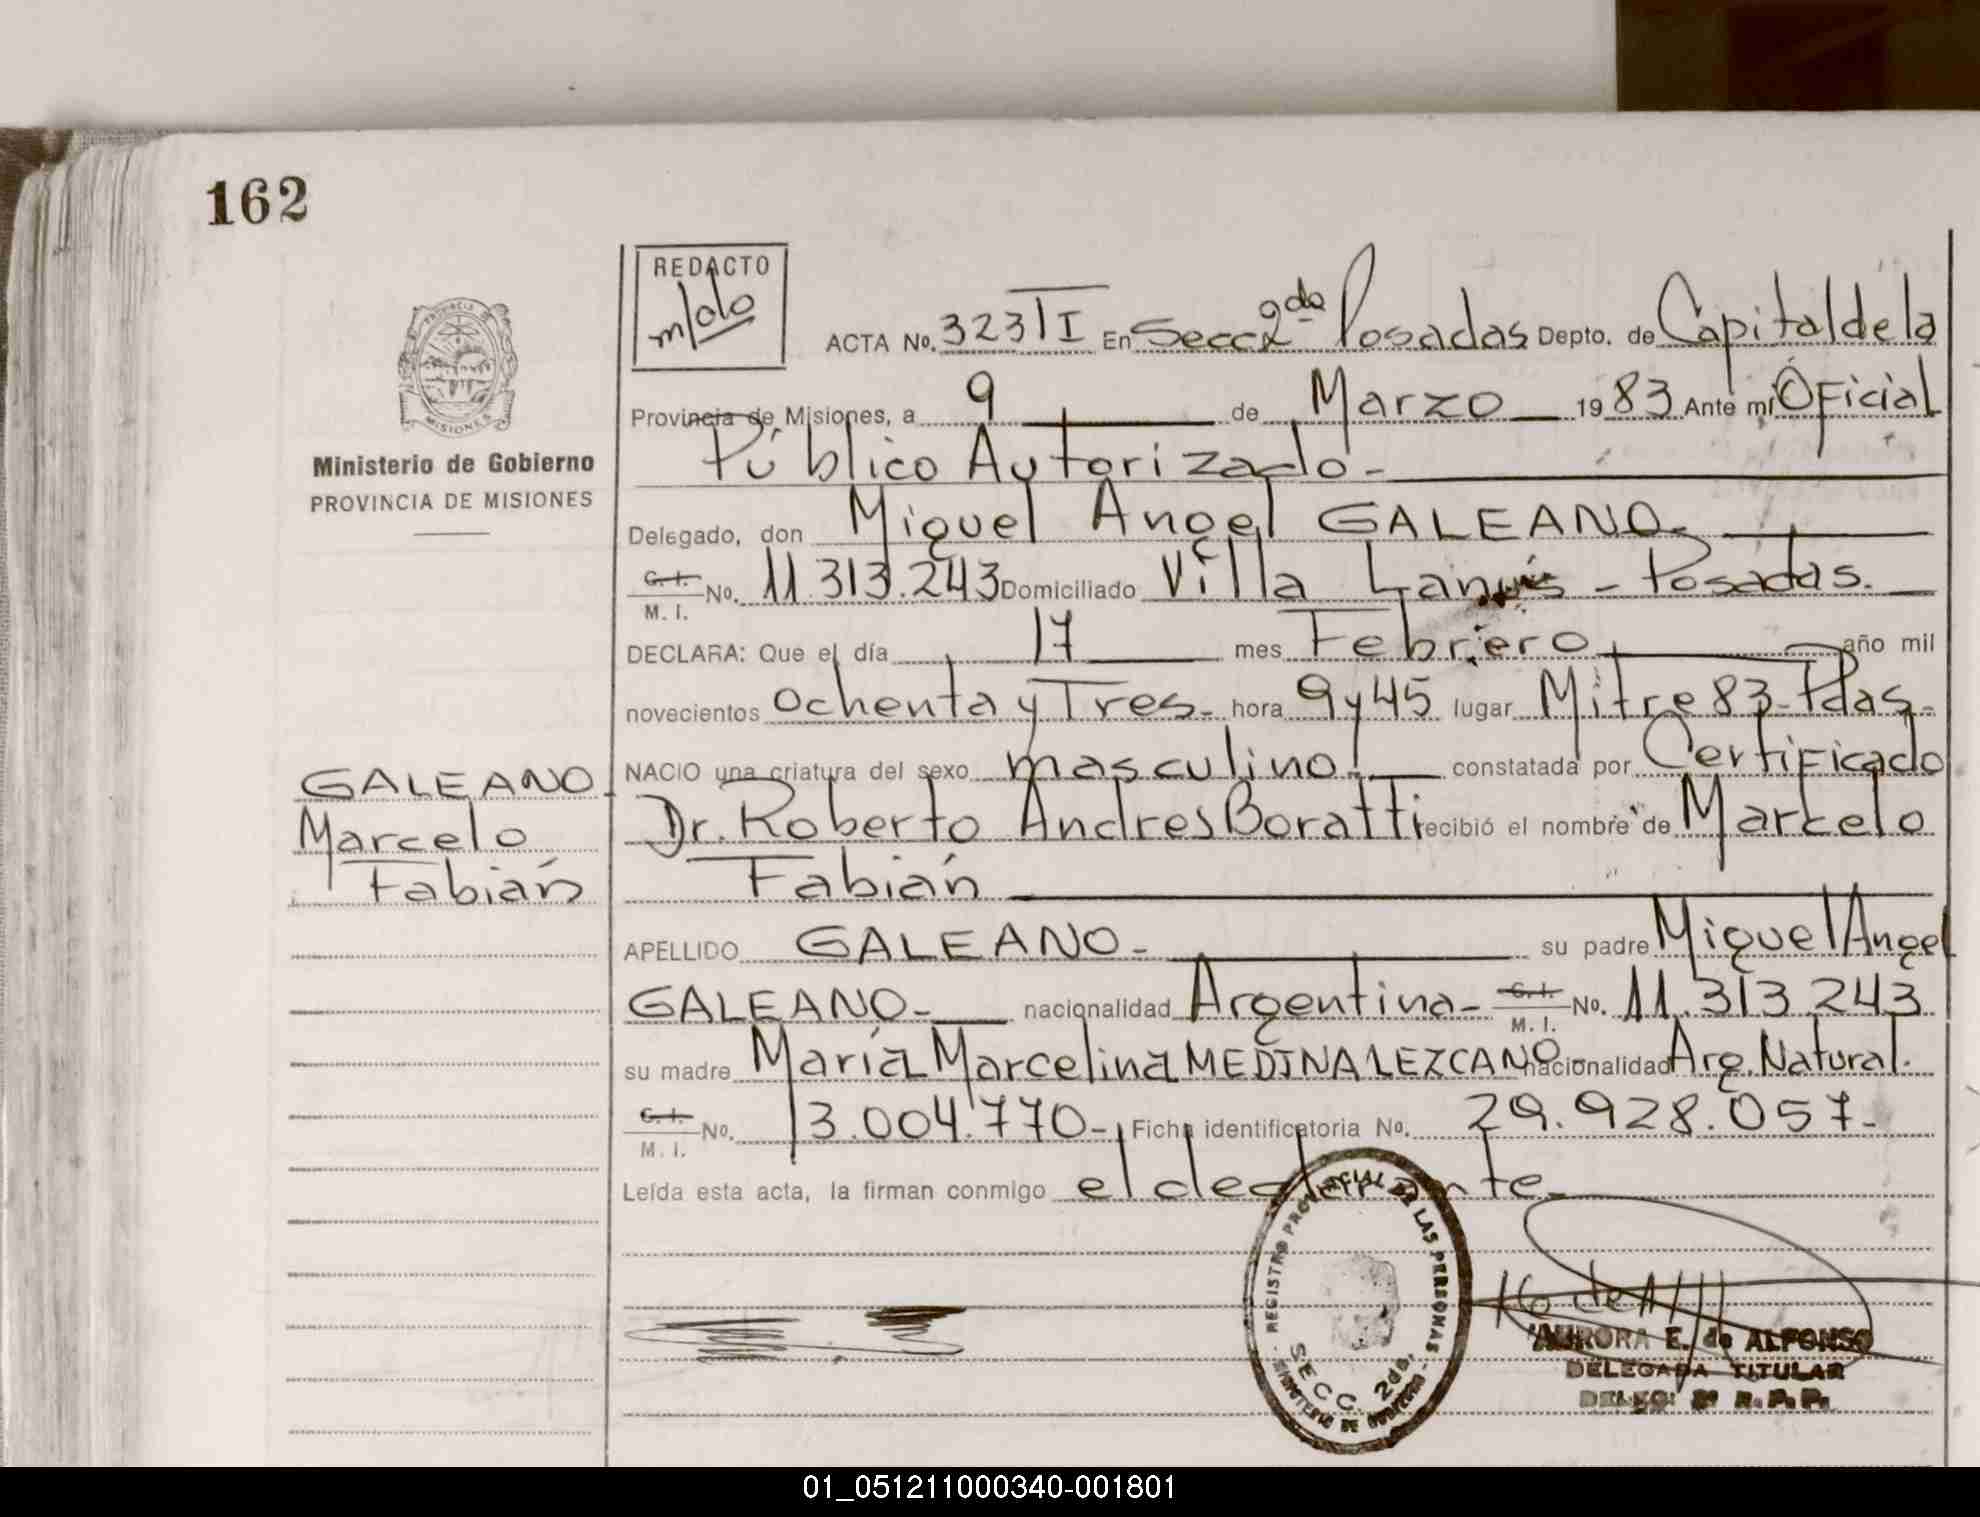 162
REDACTO
ACTA No. 323 I En Secc 2da Posadas Depto. de Capital de la
Provincia de Misiones, a 9 de Marzo 1983 Ante mí Oficial
Público Autorizado-
Ministerio de Gobierno
PROVINCIA DE MISIONES
Delegado, don Miguel Angel GALEANO-
C. I. M. I. No. 11.313.243 Domiciliado Villa Lanús - Posadas.
DECLARA: Que el día 17 mes Febrero año mil
novecientos ochenta y Tres- hora 9 y 45 lugar Mitre 83-Pdas-
NACIO una criatura del sexo masculino constatada por Certificado
Dr. Roberto Andres Boratti recibió el nombre de Marcelo
Fabián
GALEANO
Marcelo
Fabián
APELLIDO GALEANO- su padre Miguel Angel
GALEANO- nacionalidad Argentina- C. I. M. I. No. 11.313.243
su madre María Marcelina MEDINA LEZCANO nacionalidad Arg. Natural.
C. I. M. I. No. 13.004.770- Ficha identificatoria No. 29.928.057-
Leída esta acta, la firman conmigo el declarante-
REGISTRO PROVINCIAL DE LAS PERSONAS
SECC. 2da.
MINISTERIO DE GOBIERNO
AURORA E. de ALFONSO
DELEGADA TITULAR
DELEG. 2ª R. P. P.
01_051211000340-001801